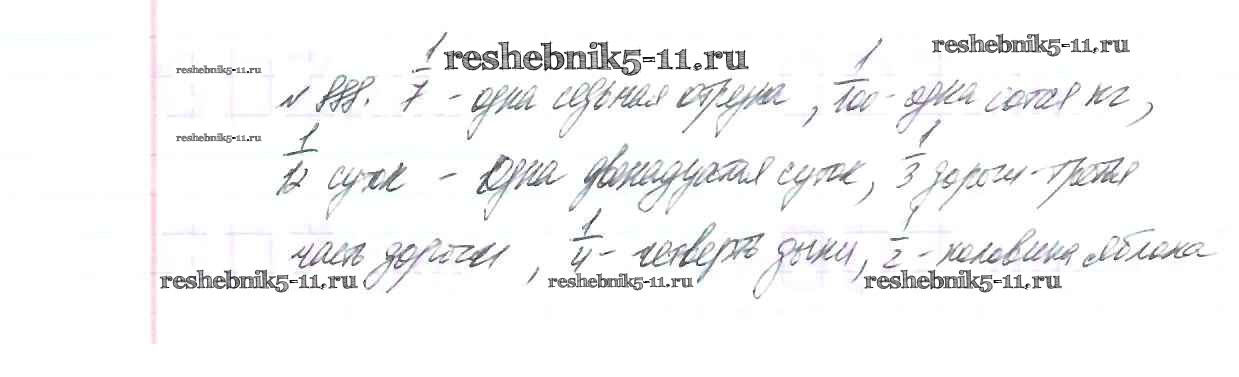 reshebnik5-11.ru
reshebnik5-11.ru
reshebnik5-11.ru
№ 888. 1/7 - одна седьмая отрезка, 1/100 - одна сотая кг,
reshebnik5-11.ru
1/12 суток - одна двенадцатая суток, 1/3 дороги - третья
часть дороги, 1/4 - четверть дыни, 1/2 - половина яблока
reshebnik5-11.ru
reshebnik5-11.ru
reshebnik5-11.ru